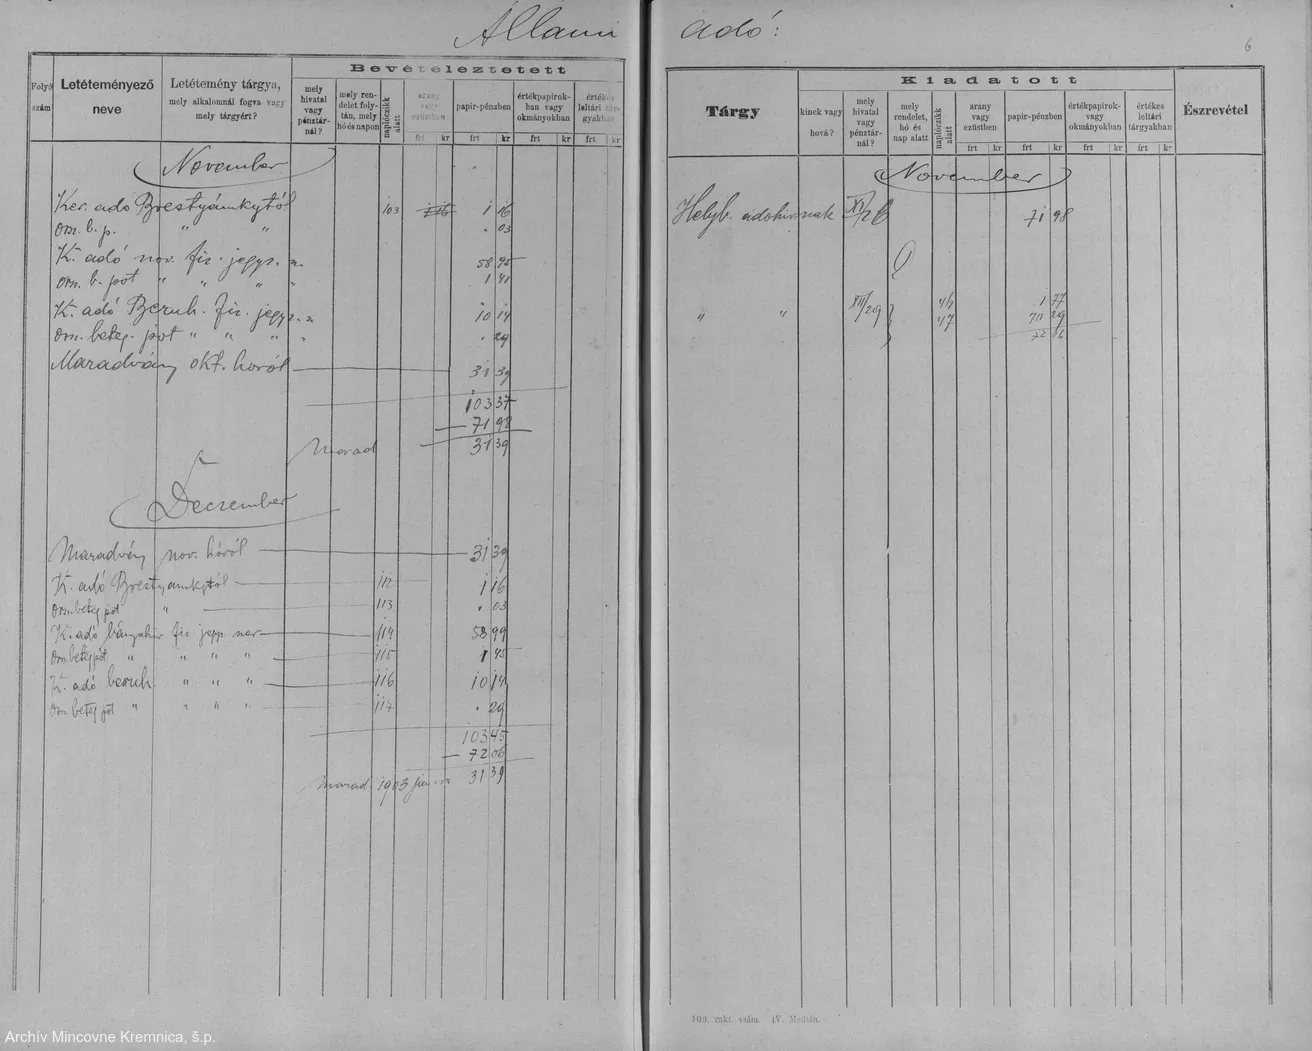 Állami adó:
6
Bevételeztetett
Folyó szám
Letéteményező neve
Letétemény tárgya, mely alkalomnál fogva vagy mely tárgyért?
mely hivatal vagy pénztárnál?
mely rendelet folytán, mely hó és napon
naplóczikk alatt
arany vagy ezüstben
papir-pénzben
értékpapirokban vagy okmányokban
értékes leltári tárgyakban
frt kr frt kr frt kr frt kr
November
Ker. adó Brestyánkytól 103 1 16
Orsz. b. p. " " . 03
K. adó nov. fiz. jegyz. sz. 58 95
orsz. b. pót " " " " 1 41
K. adó Beruh. fiz. jegyz. sz. 10 14
orsz. beteg. pót " " " " . 29
Maradvány okt. horól 31 39
103 37
71 98
Marad 31 39
Deczember
Maradvány nov. hóról 31 39
K. adó Brestyánkytól 112 1 16
Orsz. beteg pót " 113 . 03
K. adó bányahiv fiz. jegyz. szer 114 58 99
Orsz. beteg pót " " " " 115 1 45
K. adó beruh. " " " 116 10 14
Orsz. beteg pót " " " " 117 . 29
103 45
72 06
Marad 1903 31 39
Kiadatott
Tárgy
kinek vagy hová?
mely hivatal vagy pénztárnál?
mely rendelet, hó és nap alatt
naplóczikk alatt
arany vagy ezüstben
papir-pénzben
értékpapirok- vagy okmányokban
értékes leltári tárgyakban
Észrevétel
frt kr frt kr frt kr frt kr
November
Helyb. adóhivnak XI/26 71 98
" " XII/29 46 1 77
47 70 29
72 06
109. rakt. szám. IV. Medián.
Archív Mincovne Kremnica, š.p.